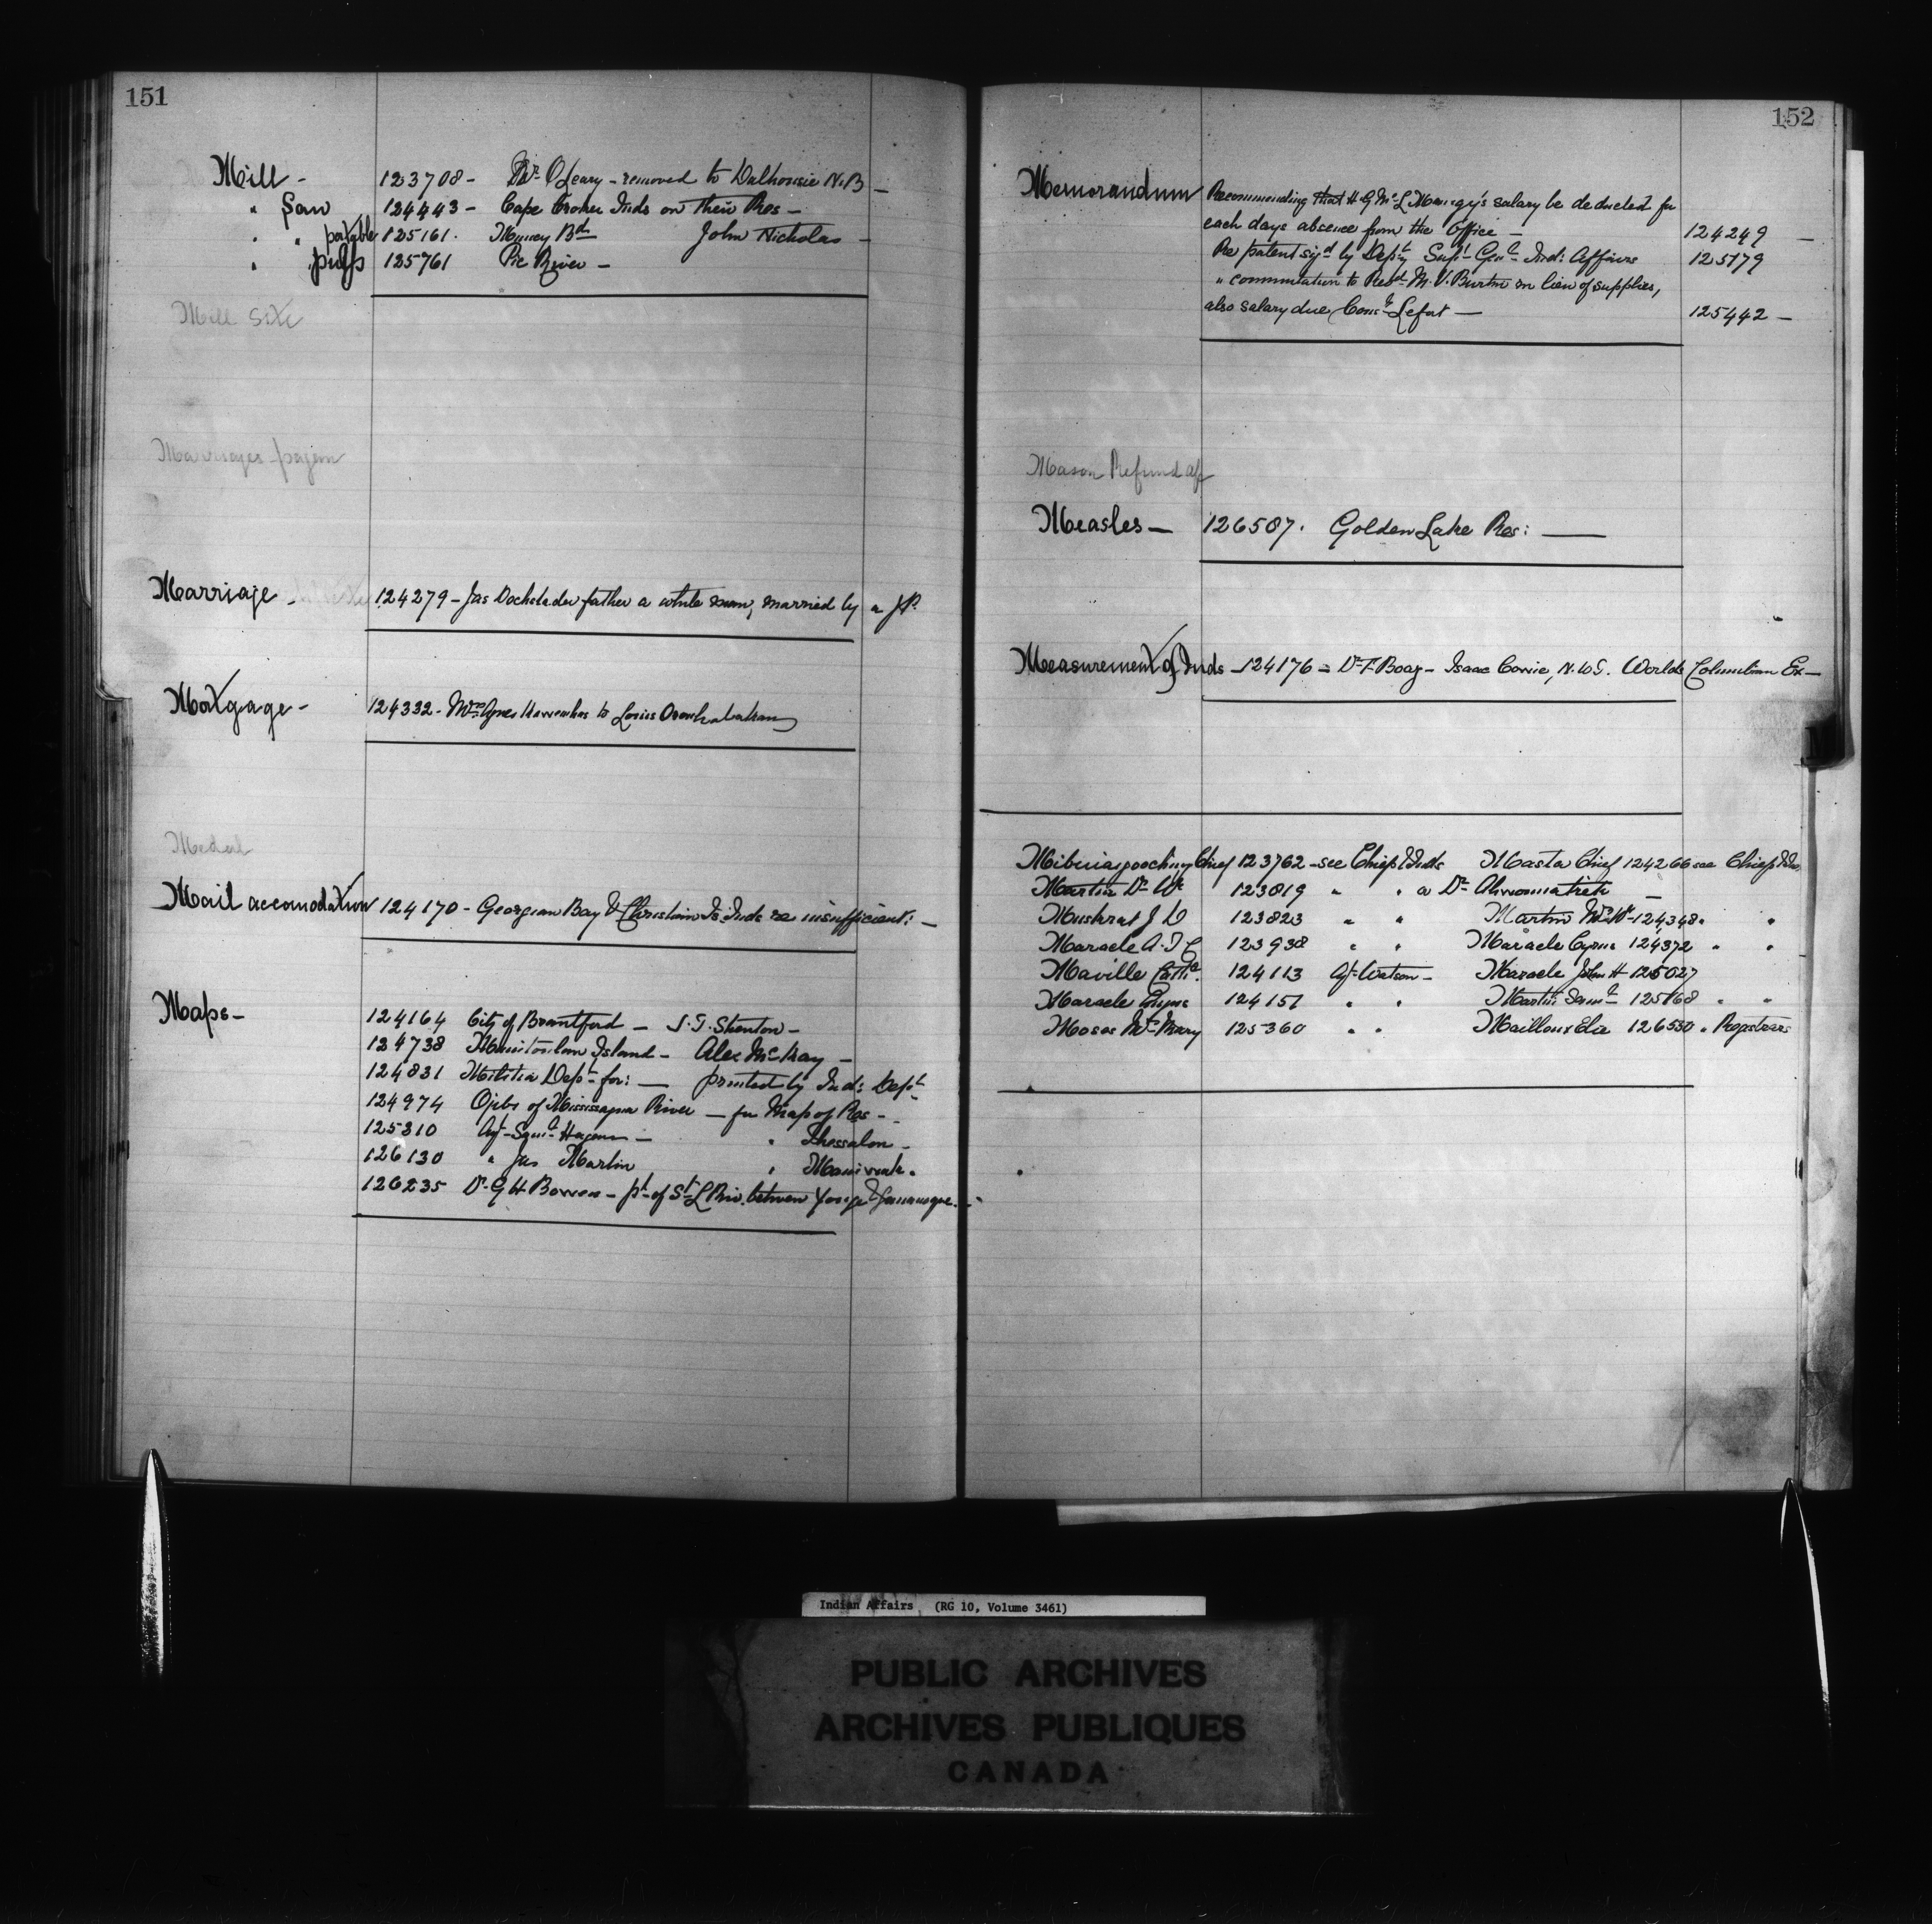 151
Mill - 123708 - Mr. O'Leary - removed to Dalhousie N.B -
" Saw 124443 - Cape Croker Inds on their Res -
" " portable 125161. Muncey Bd John Nicholas -
" pulp 125761 Pic River -
Mill Site
Marriages pagan
Marriage - 124279 - Jas Dockstader father a white man, married by a J.P.
Mortgage - 124332 - Mrs Agnes to Louis
Medal
Mail accomodation 124170 - Georgian Bay & Christian Is. Inds re insufficient: -
Maps -
124164 City of Brantford - J.T. Stenton -
124738 Manitoulin Island - Alex McKay -
124831 Militia Dept for: - printed by Ind: Dept
124974 Ojibs of Mississagua River - for Map of Res -
125310 Agt Saml Hagan - " Thessalon -
126130 " Jas Martin " Maniwaki.
126235 Dr G H Bowen - pt of St L Riv. between Yonge & Gananoque. -
152
Memorandum Recommending that H. G. McL salary be deducted for
each days absence from the Office - 124249 -
Re patent sigd by Depty Supt Genl Ind: Affairs 125179
" commutation to Revd M. V. Burtin in lieu of supplies,
also salary due Const Lefort - 125442 -
Mason Refund of
Measles - 126507. Golden Lake Res: -
Measurement of Inds - 124176 - Dr F. Boas - Isaac Cowie, N.W.T. Worlds Columbian Ex -
Chief 123762 - see Chiefs & Inds Masta Chief 124266 see Chiefs & Inds
Martin Dr W 123819 " " a Dr -
Muskrat J D 123823 " " Martin Mrs W - 124348. "
Maracle A. T. C 123938 " " Maracle Cyrus 124372 " "
Maville Cathe. 124113 Agt Watson - Maracle John H 125027
Maracle 124151 " " Martin Saml 125168 " "
Moses Mrs Mary 125360 " " Mailloux Elie 126530 " Registrars
Indian Affairs (RG 10, Volume 3461)
PUBLIC ARCHIVES
ARCHIVES PUBLIQUES
CANADA